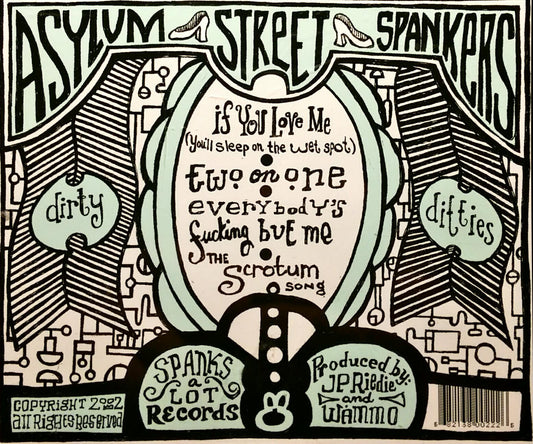 ASYLUM STREET SPANKERS
if You Love Me
(You'll sleep on the wet spot)
two on one
everybody's
fucking but me
THE Scrotum
SONG
dirty
ditties
SPANKS
a
LOT
RECORDS
Produced by:
JP Riedie
and
WAMMO
COPYRIGHT 2002
All Rights Reserved
82138 00222